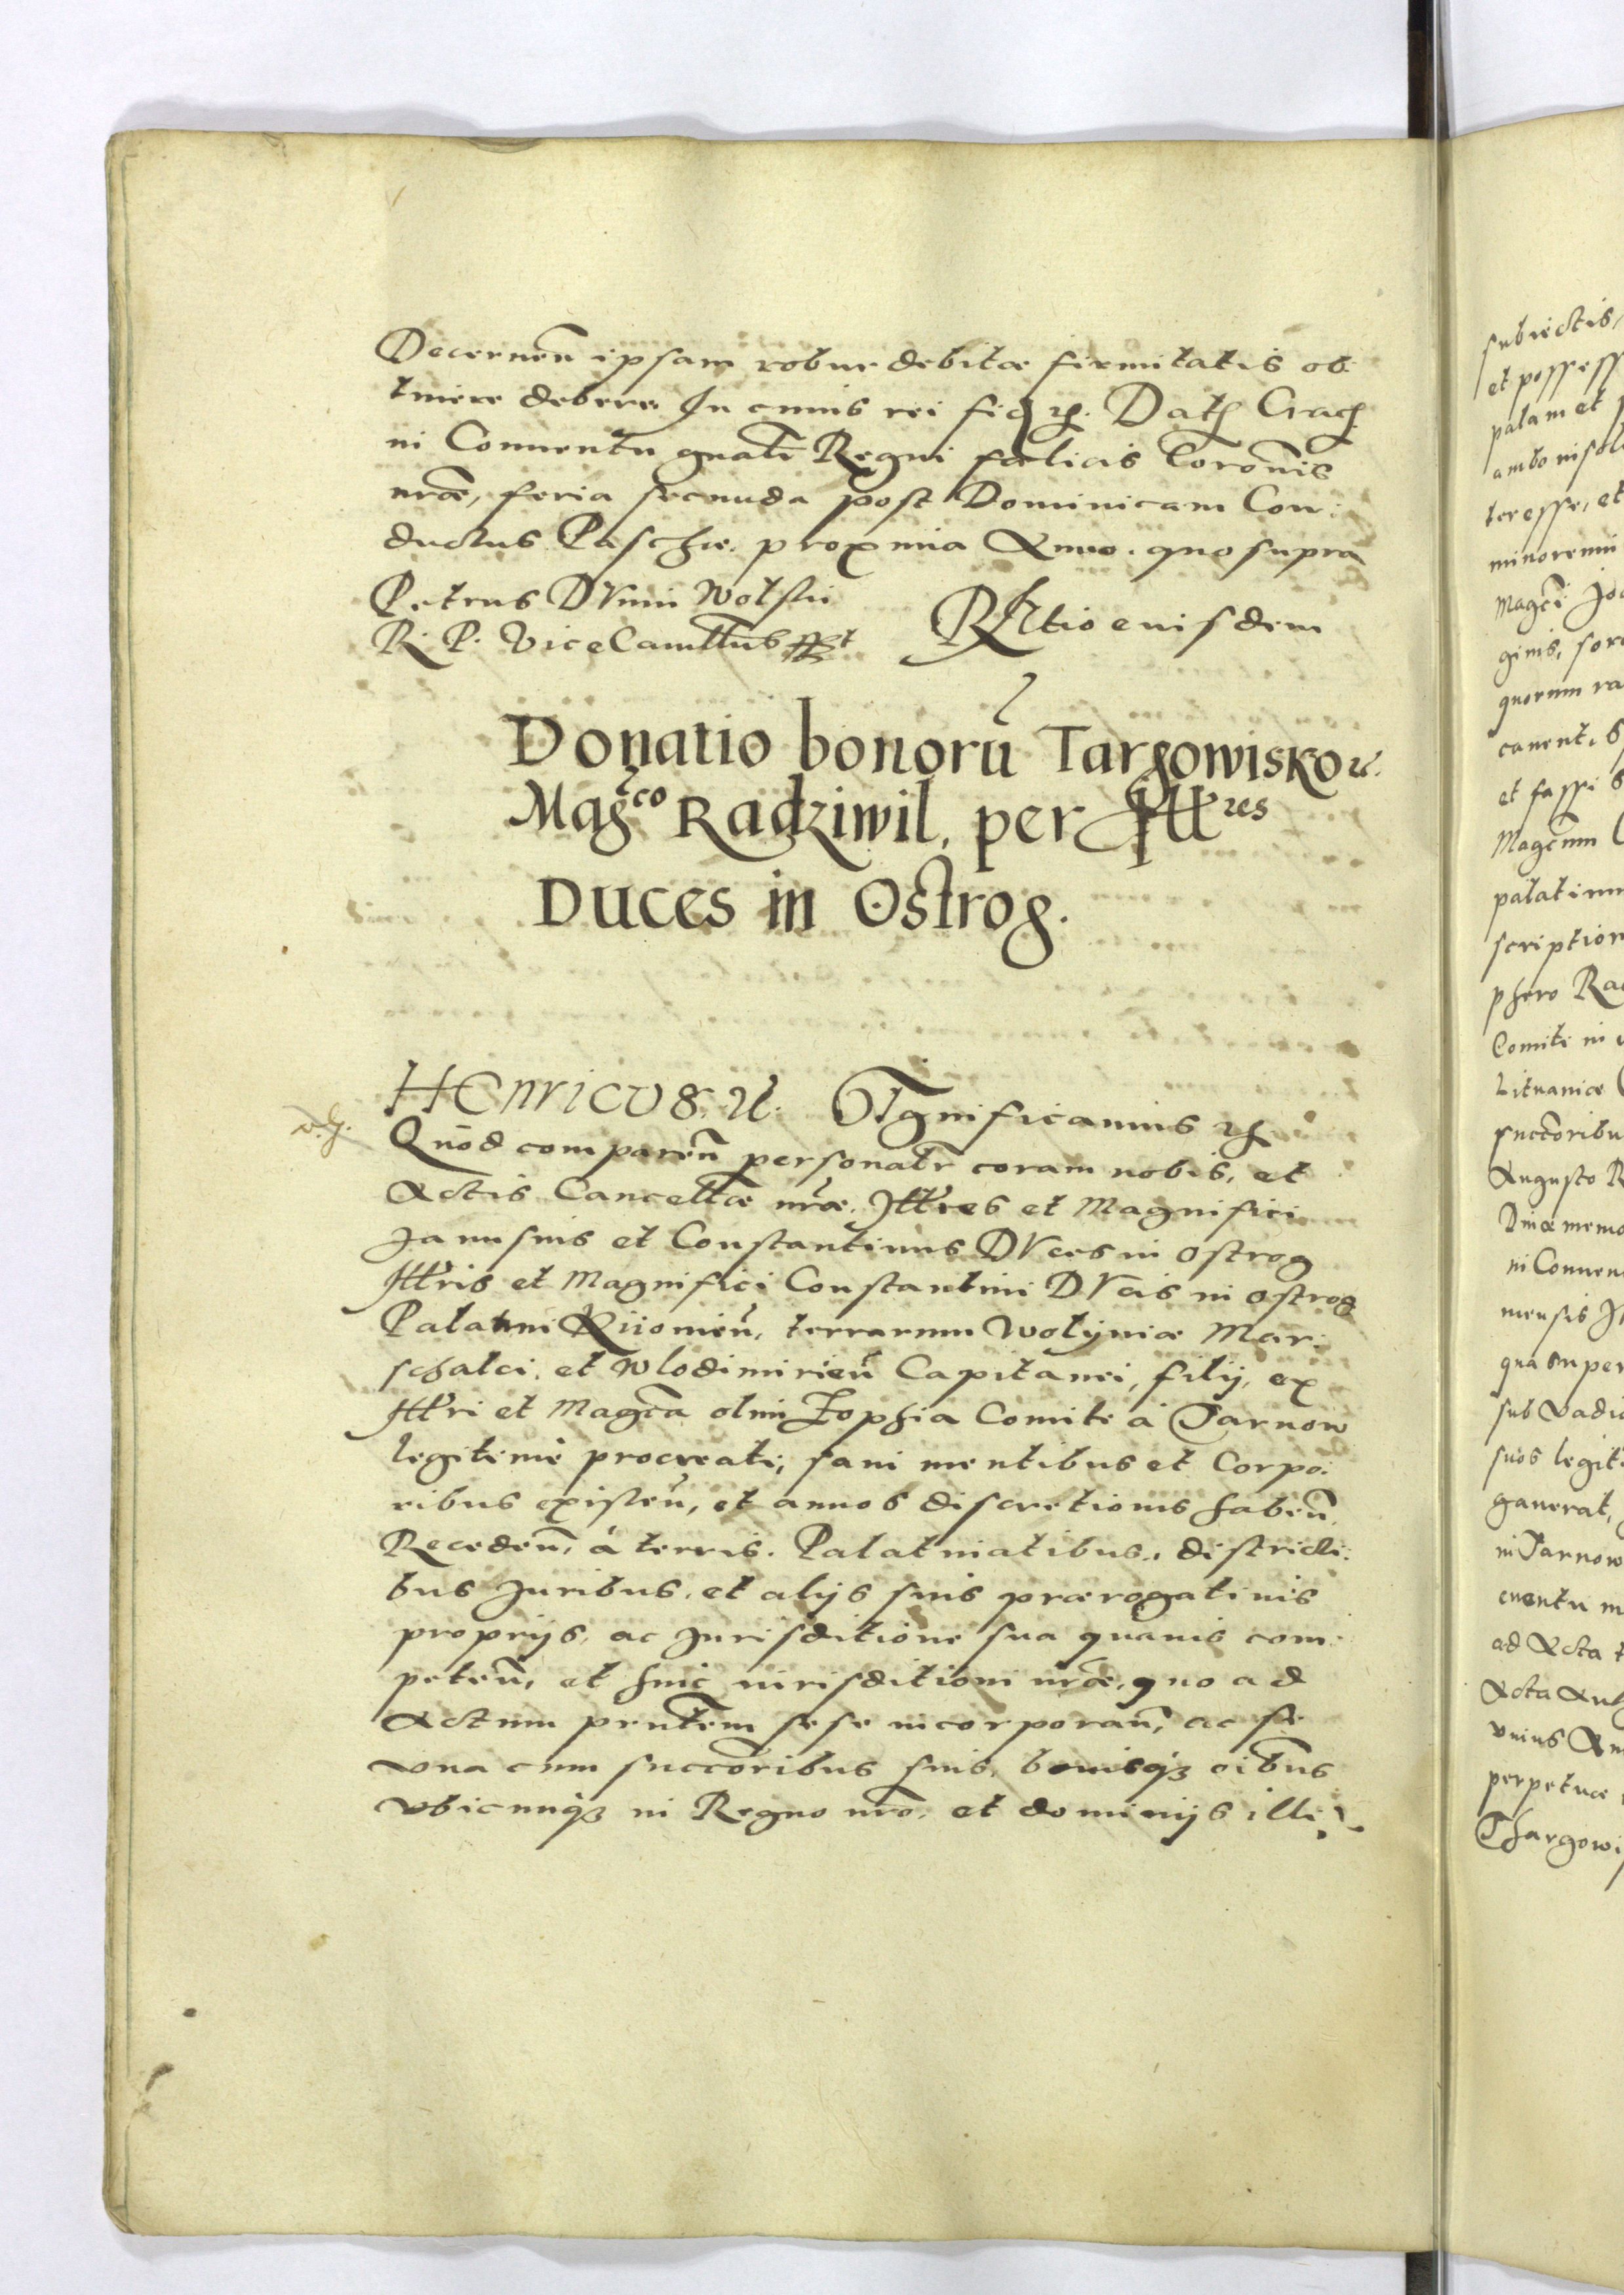 Decernen̄ ipsam robur debitæ firmitatis ob:
tinere debere. In cuius rei fid. etc. Dat. Crac.
in Conuentu gnãli Regni fœlicis Coronis̃
nr̃æ, feria secunda post Dominicam Con:
ductus Paschæ proxima Anno. quo supra
Petrus DVnin Wolski
R. P. ViceCancellrius sst
Rełtio euisdem
Donatio bonorū Targowisko etc.
Mag.co Radziwil, per Illres
Duces in Ostrog.
HEnricVS. etc. SIgnificamus etc.
Quòd comparen̄ personalr̃ coram nobis, et
Actis Cancellæ nr̃æ. Illres et Magnifici
Janusius et Constantinus DVces in Ostrog
Illris et Magnifici Constantini DVcis in Ostrog
Palatini Kiiouien̄, terrarum Wolyniæ Mar:
schalci, et Wlodimirien̄ Capitanei, filij, ex
Illri et Magca olim Zophia Comite à Tarnow
legitimè procreati, sani mentibus et Corpo:
ribus existen̄, et annos discretionis haben̄.
Receden̄, à terris. Palatinatibus, districti:
bus Juribus, et alijs suis prærogatiuis
proprijs, ac Jurisditione sua quauis com:
peten̄, et huic iurisditioni nr̃æ, quo ad
Actum prntem sese incorporan̄, ac se
vna cum succoribus suis, bonisq3 oibus
vbicunq3 in Regno nr̃o, et dominijs illi
subiectis,
et possess
palam et
ambo insol
teresse, et
minorenni
Magci Jo
ginis, soro
quorum ra
cauent, 
et fassi 
Magcum
palatinum
scription
phero Rad
Comiti in
Lituaniæ
succoribu
Augusto R
Diuæ memo
in Conuen
mensis
qua super
sub vadio
suos legit
gauerat,
in Tarnow
euentu
ad Acta
Acta
vnius
perpetuæ
Thargowi